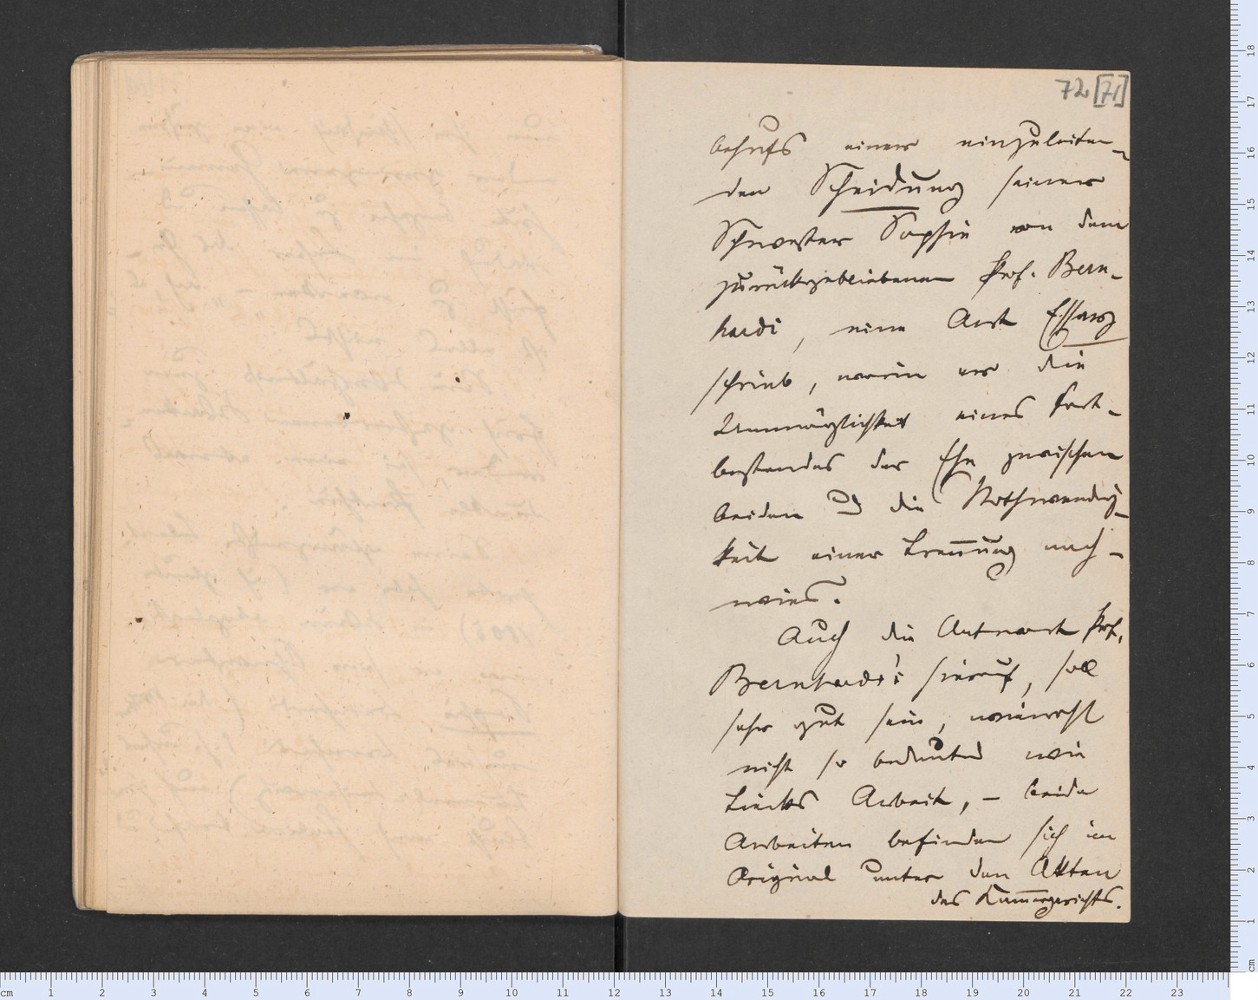 72 [71]
behufs einer einzuleiten-
den Scheidung seiner
Schwester Sophie von dem
zurückgebliebenen Prof. Bern-
hardi, eine Art Essay
schrieb, worin er die
Unmöglichkeit eines Fort-
bestandes der Ehe zwischen
beiden u die Nothwendig-
keit einer Trennung nach-
wies.
Auch die Antwort Prof.
Bernhardi's hierauf, soll
sehr gut sein, wiewohl
nicht so bedeutend wie
Tiecks Arbeit, – beide
Arbeiten befinden sich im
Original unter den Akten
des Kammergerichts.